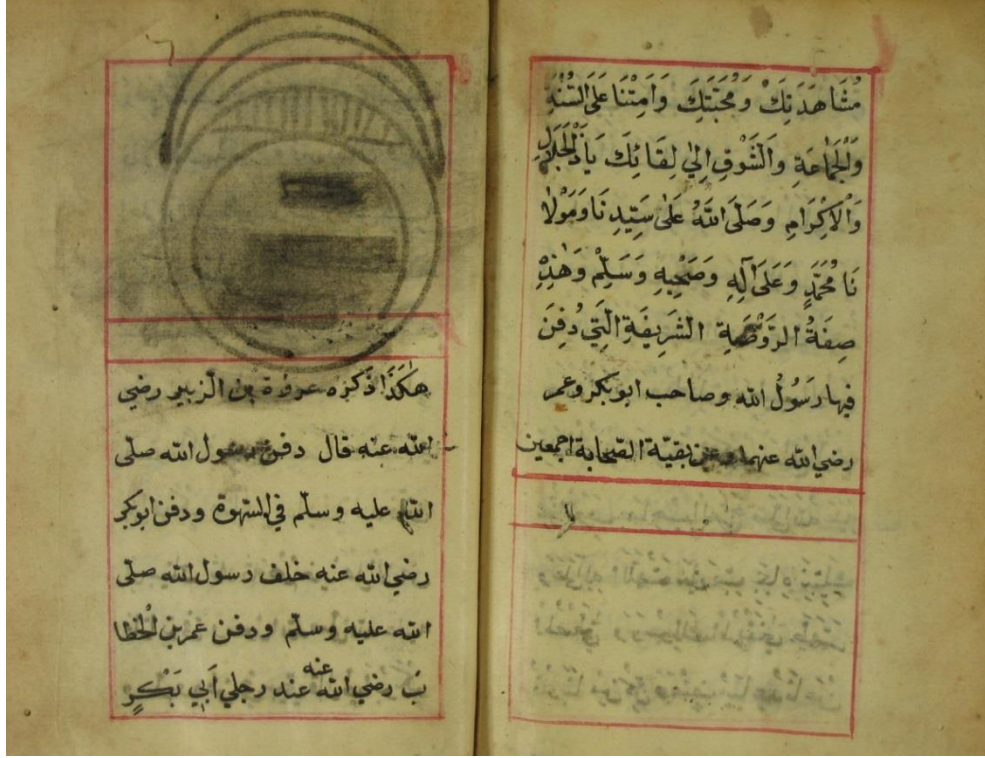 مُشَاهَدَتِكَ وَمُحَبَّتِكَ وَاَمِتْنَا عَلَى السُّنَّةِ
وَالْجَمَاعَةِ وَالْشَّوْقِ اِلٰي لِقَائِكَ يَاذَالْجَلَالِ
وَالْاِكْرَامِ وَصَلَّى اللّٰهُ عَلٰى سَيِّدِنَا وَمَوْلَا
نَا مُحَمَّدٍ وَعَلَى آلِهِ وَصَحْبِهِ وَسَلِّمْ وَهٰذِهْ
صِفَةُ الرَّوْضَةِ الشَّرِيفَةِ الَّتِي دُفِنَ
فيها رَسُولُ الله وصاحب ابوبكر وعمر
رضي الله عنهما وعن بقيّة الصّحابة اجمعين
هٰكَذَا ذَكَرَه عروة بن الزّبير رضي
الله عنه قال دفن رسول الله صلى
الله عليه وسلّم في السّهوة ودفن ابوبكر
رضي الله عنه خلف رسول الله صلّى
الله عليه وسلّم ودفن عمر بن الْخطا
بَ رضي الله عنه عند رجلي اَبِي بَكْرٍ